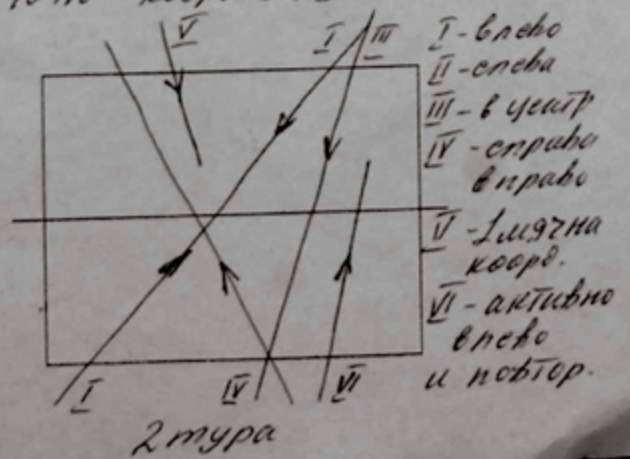 V
I
III
I - влево
II - слева
III - в центр
IV - справа
вправо
V - 1 мяч на
коорд.
VI - активно
влево
и повтор.
I
IV
VI
2 тура